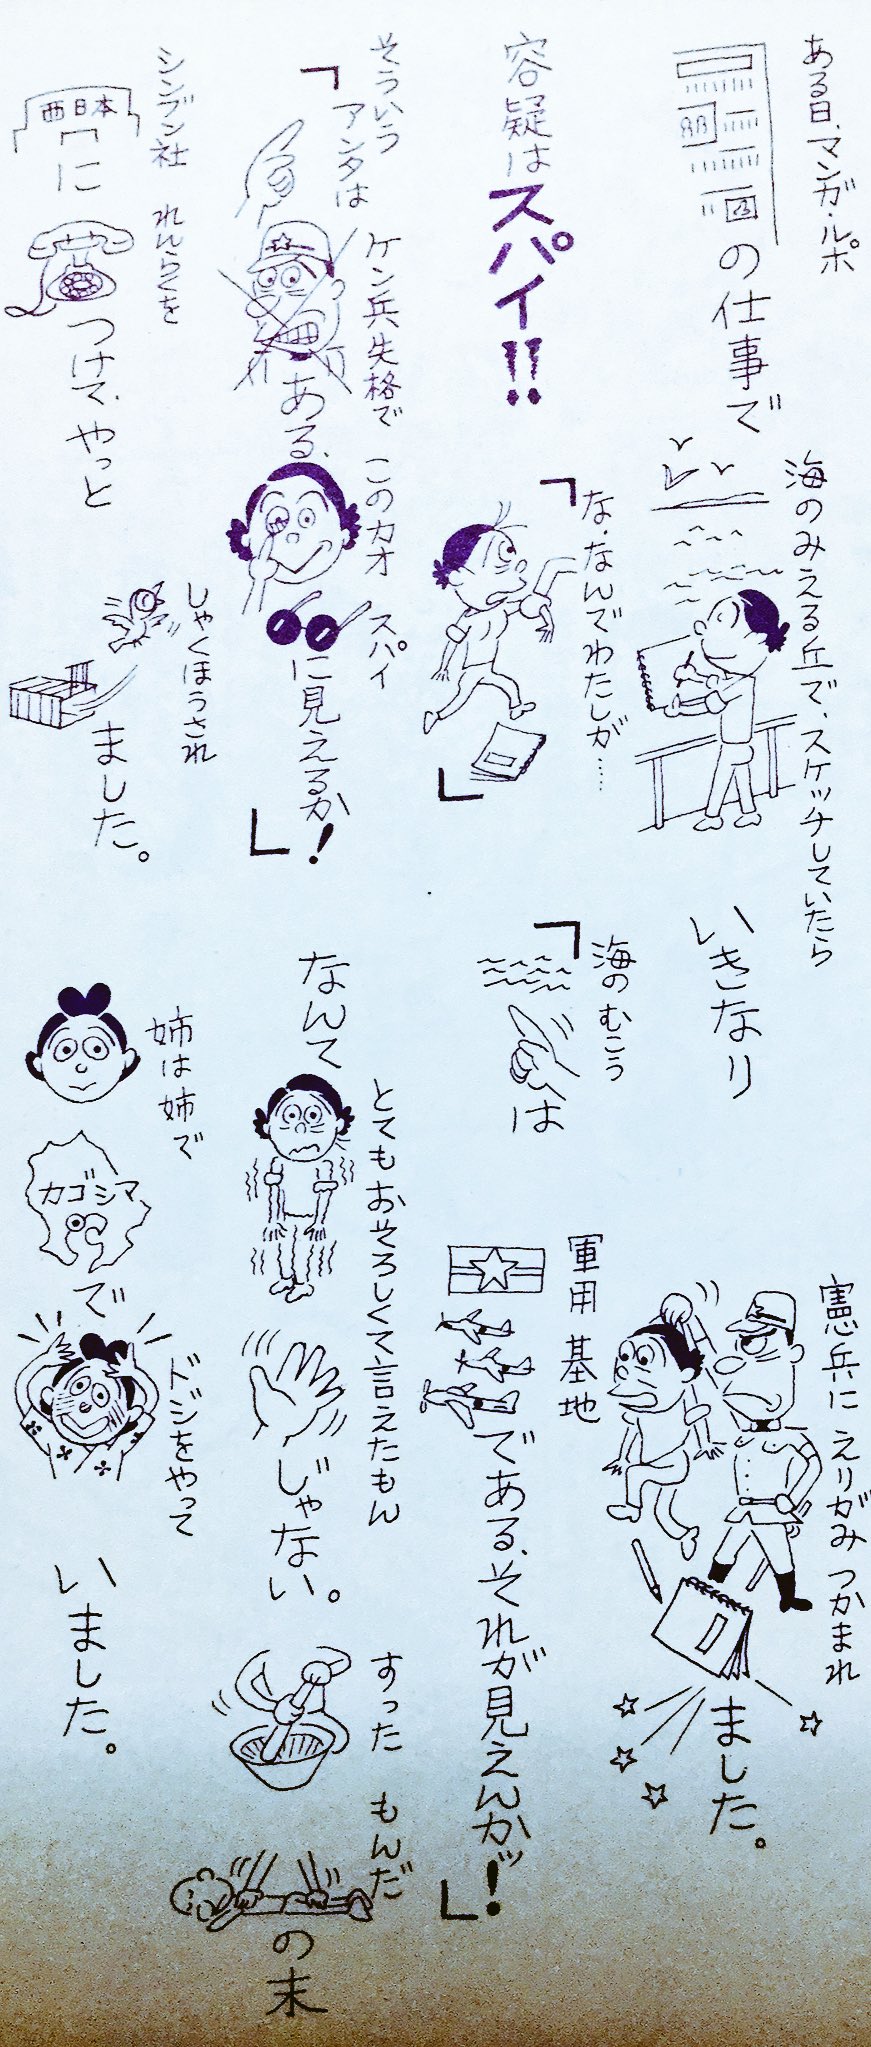 ある日、マンガ・ルポ
の仕事で
海のみえる丘で、スケッチしていたら
いきなり
憲兵に えりがみ つかまれ
ました。
容疑はスパイ!!
「な・なんでわたしが……」
「海の むこう
は
軍用 基地
である、それが見えんかッ!」
そういう
「アンタは
ケン兵失格で
ある、
このカオ
スパイ
に見えるか!」
なんて
とてもおそろしくて言えたもん
じゃない。
すった もんだ
の末
シンブン社
西日本
に
れんらくを
つけて、やっと
しゃくほうされ
ました。
姉は姉で
カゴシマ
で
ドジをやって
いました。